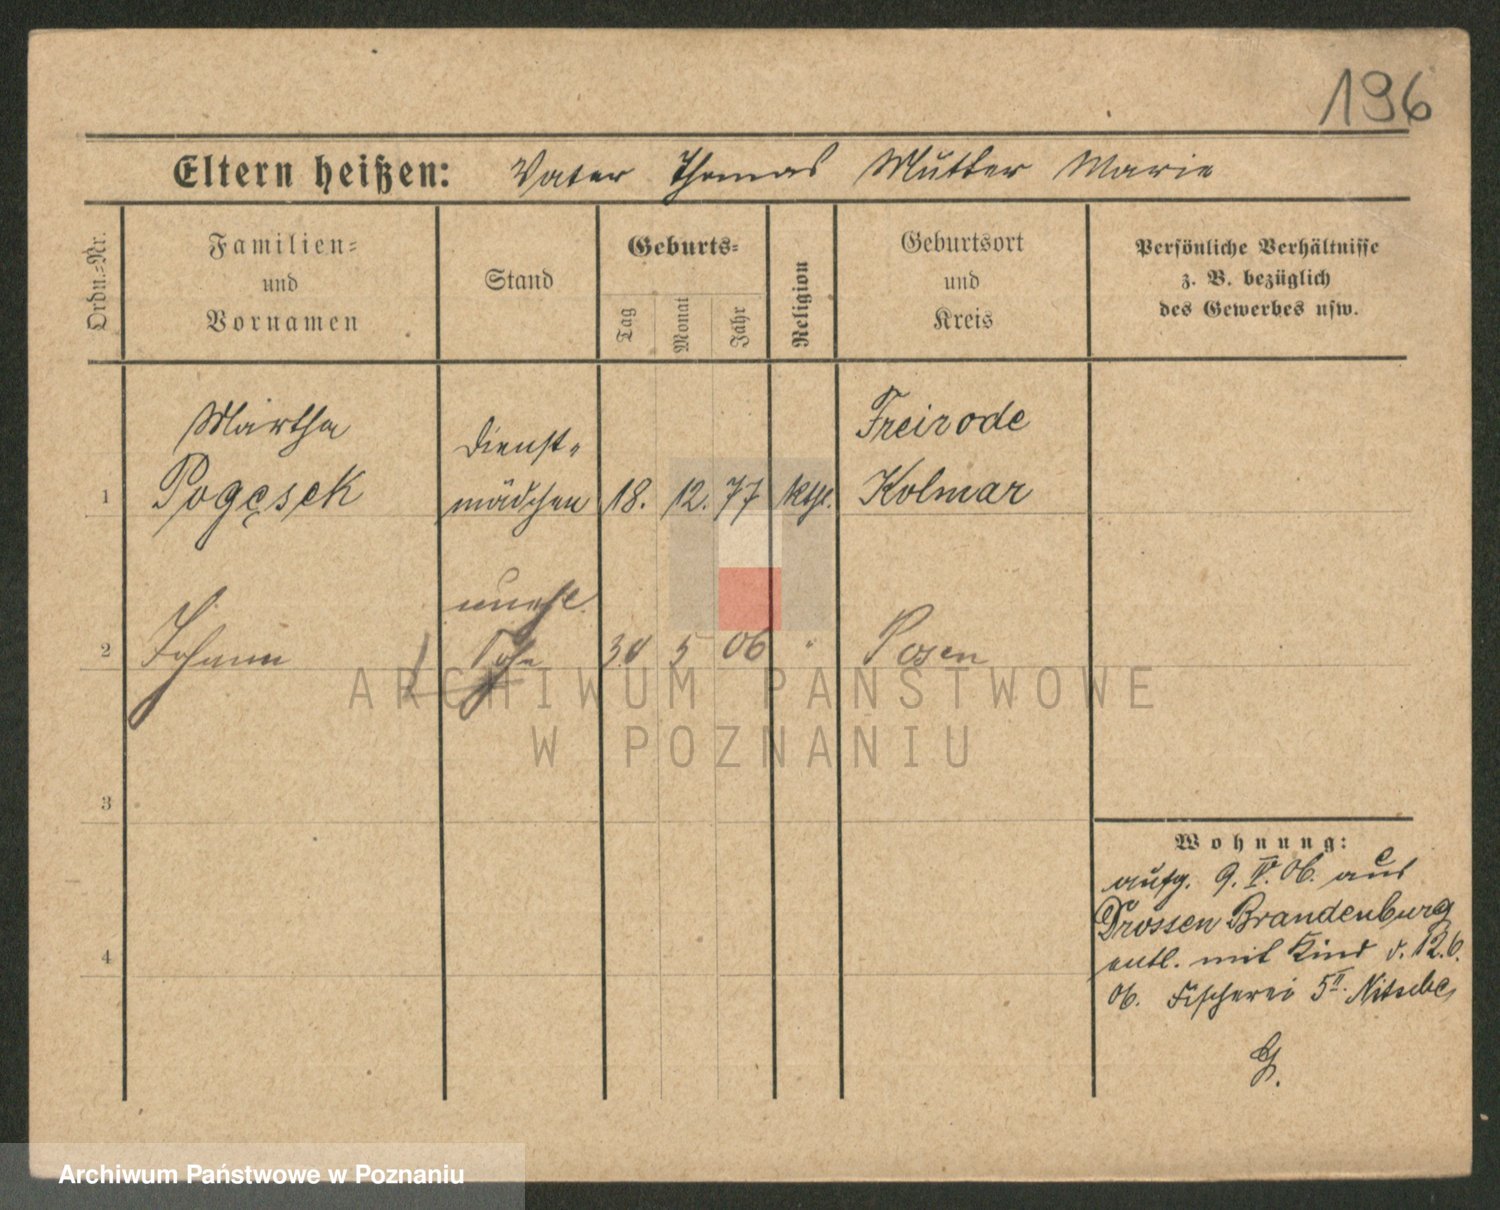 196
Eltern heißen: Vater Thomas Mutter Marie
Ordn.-Nr.
Familien-
und
Vornamen
Stand
Geburts-
Tag
Monat
Jahr
Religion
Geburtsort
und
Kreis
Persönliche Verhältnisse
z. B. bezüglich
des Gewerbes usw.
Martha Dienst- Freirode
1 Pogęsek mädchen 18. 12. 77 kth. Kolmar
unehl.
2 Johann Sohn 30 5 06 " Posen
ARCHIWUM PAŃSTWOWE
W POZNANIU
3
Wohnung:
aufg. 9. IV. 06. aus
Drossen Brandenburg
4 entl. mit Kind d. 12.6.
06. Fischerei 5 II.
G.
Archiwum Państwowe w Poznaniu